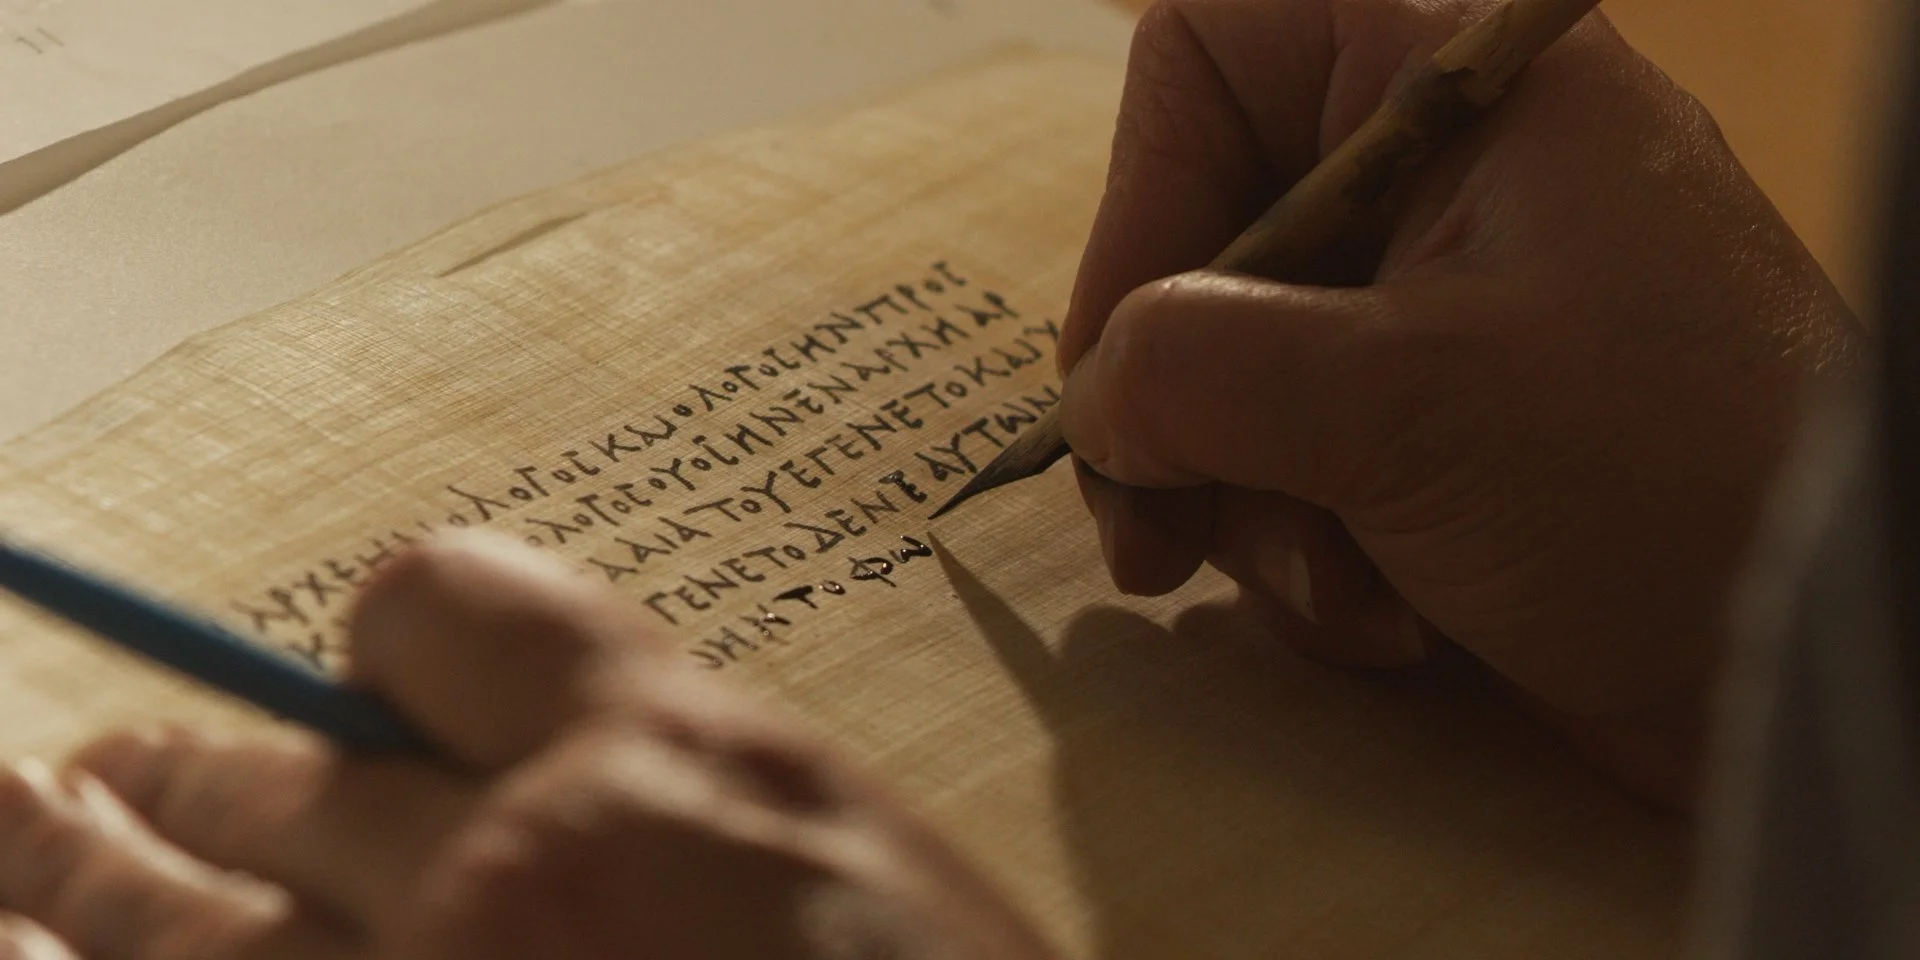 ΑΡΧΕΗ ΟΛΟΓΟΣΚΑΙΟΛΟΓΟΣΗΝΠΡΟΣ
Κ ΟΛΟΓΟΣΟΥΟΣΗΝΕΝΑΡΧΗΑΡ
ΑΔΙΑΤΟΥΕΓΕΝΕΤΟΚΑΙΧ
ΓΕΝΕΤΟΔΕΝΕΑΥΤΩΝ
ΗΝΤΟΦΩ